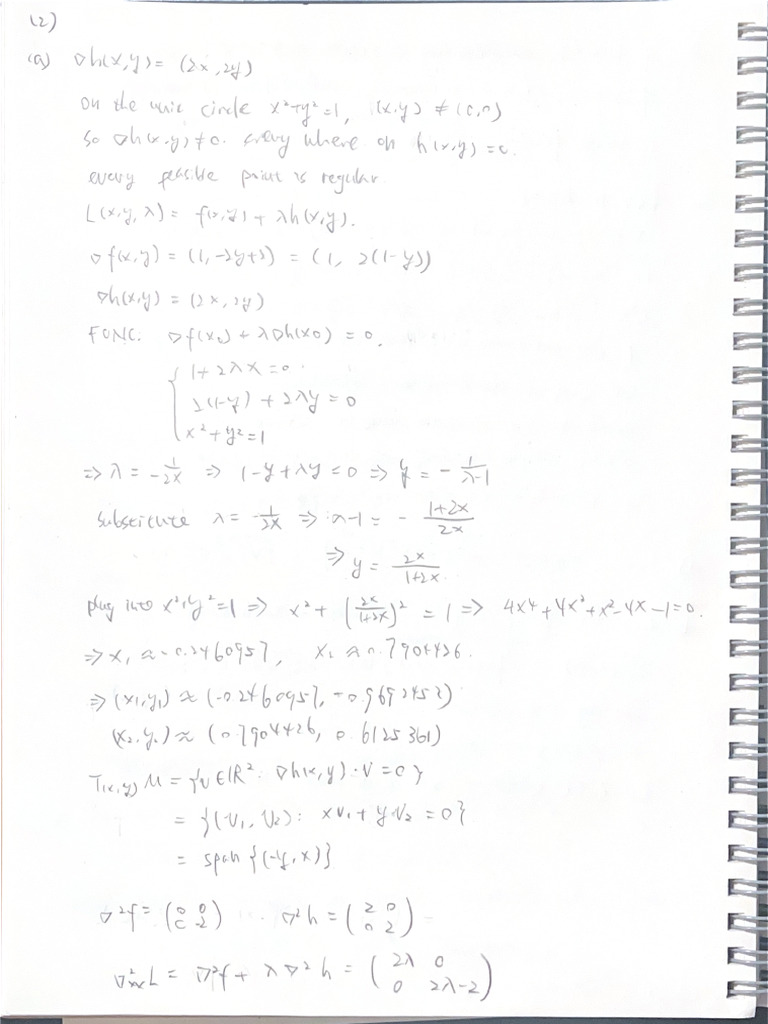 (2)
(a) ∇h(x,y) = (2x, 2y)
on the unit circle x²+y²=1, (x,y) ≠ (0,0)
so ∇h(x,y) ≠ 0. every where on h(x,y) = 0.
every feasible point is regular
L(x,y,λ) = f(x,y) + λh(x,y).
∇f(x,y) = (1, -2y+2) = (1, 2(1-y))
∇h(x,y) = (2x, 2y)
FONC. ∇f(x₀) + λ∇h(x₀) = 0.
{ 1+2λx = 0
2(1-y) + 2λy = 0
x²+y²=1
=> λ = -1/2x => 1-y+λy = 0 => y = - 1/λ-1
substitute λ = -1/2x => λ-1 = - 1+2x/2x
=> y = 2x/1+2x
plug into x²+y²=1 => x² + (2x/1+2x)² = 1 => 4x4 + 4x³ + x² - 4x - 1 = 0.
=> x₁ ≈ -0.2460957, x₂ ≈ 0.7904426.
=> (x₁,y₁) ≈ (-0.2460957, -0.9692453)
(x₂,y₂) ≈ (0.7904426, 0.6125361)
T(x,y) M = {v ∈ ℝ²: ∇h(x,y)·v = 0}
= {(v₁, v₂): xv₁ + yv₂ = 0}
= span {(-y, x)}
∇²f = (0 0 0 -2) ∇²h = (2 0 0 2)
∇²xx L = ∇²f + λ∇²h = (2λ 0 0 2λ-2)